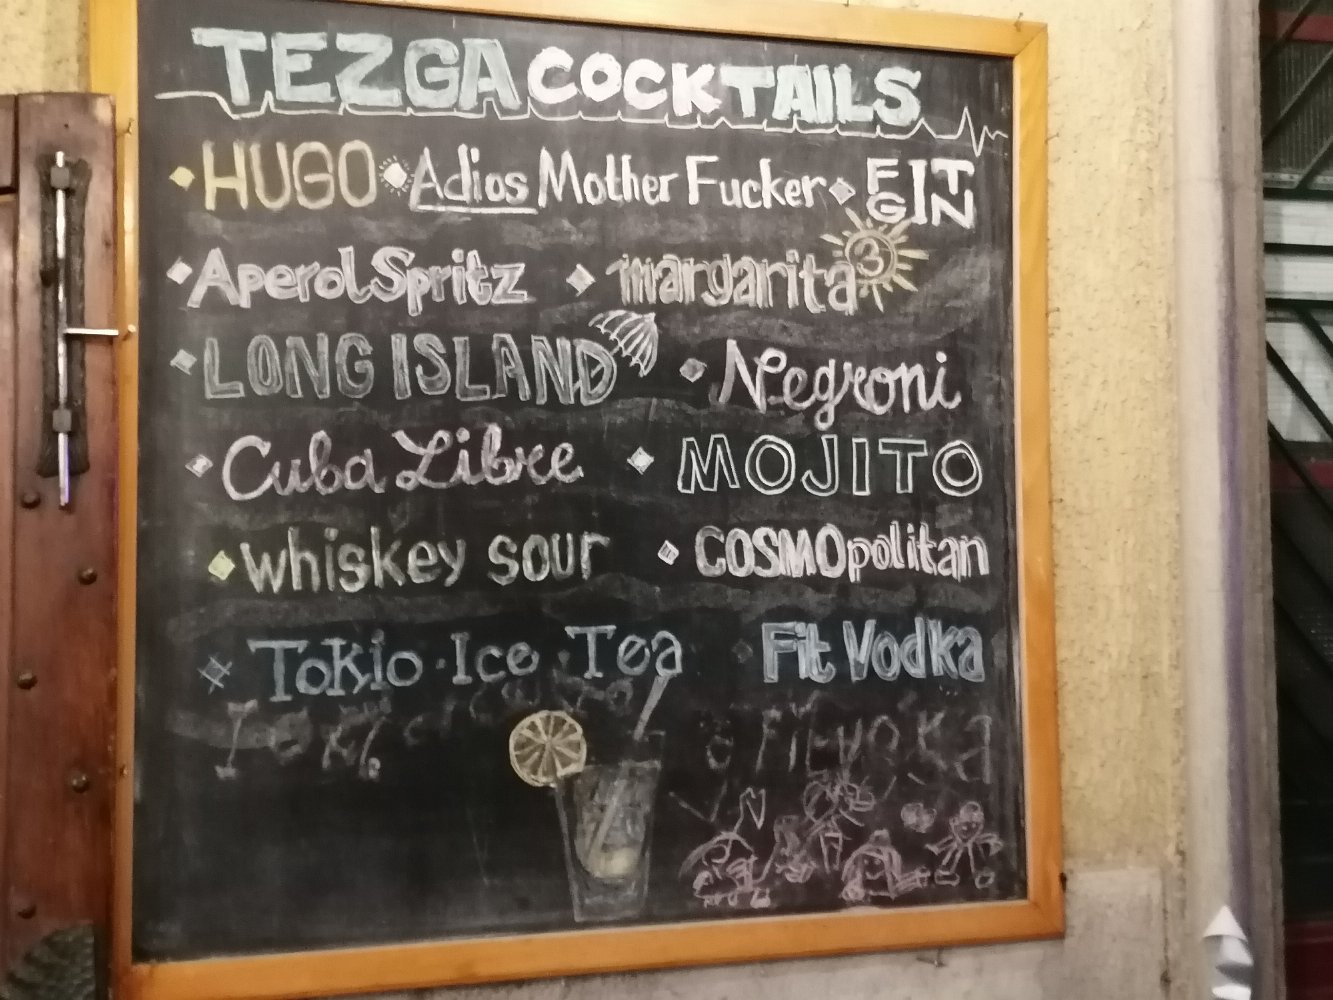 TEZGA COCKTAILS
HUGO Adios Mother Fucker FIT GIN
Aperol Spritz margarita 3
LONG ISLAND Negroni
Cuba Libre MOJITO
whiskey sour COSMOpolitan
Tokio Ice Tea Fit Vodka